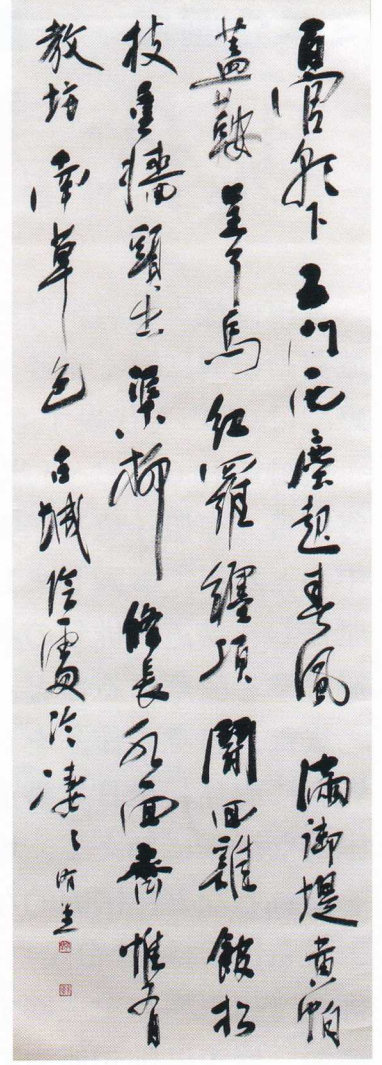 百官朝下五門西塵起春風滿御堤黃帕
蓋鞍呈了馬紅羅纏項鬥回雞館松
枝重牆頭出渠柳條長水面齊惟有
教坊南草色古城陰處冷凄々